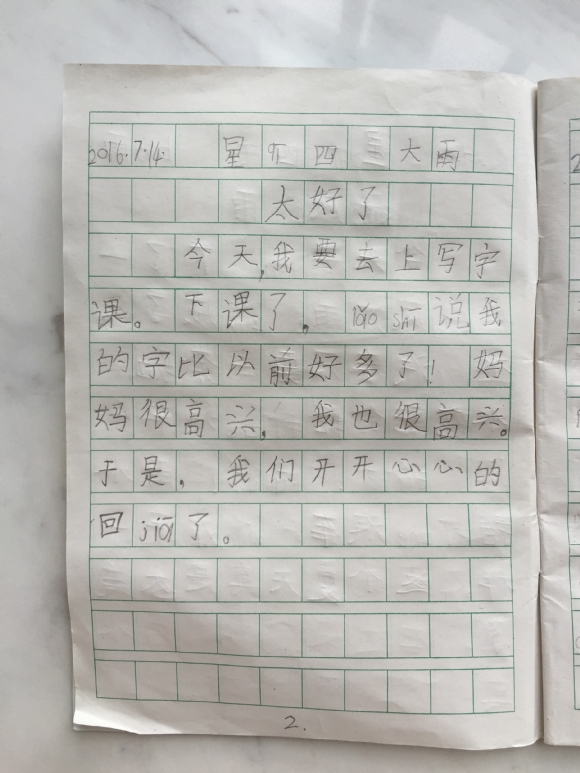 2016.7.14. 星期四 大雨
太好了
今天,我要去上写字
课。下课了,lǎo shī说我
的字比以前好多了!妈
妈很高兴,我也很高兴。
于是,我们开开心心的
回jiā了。
2.